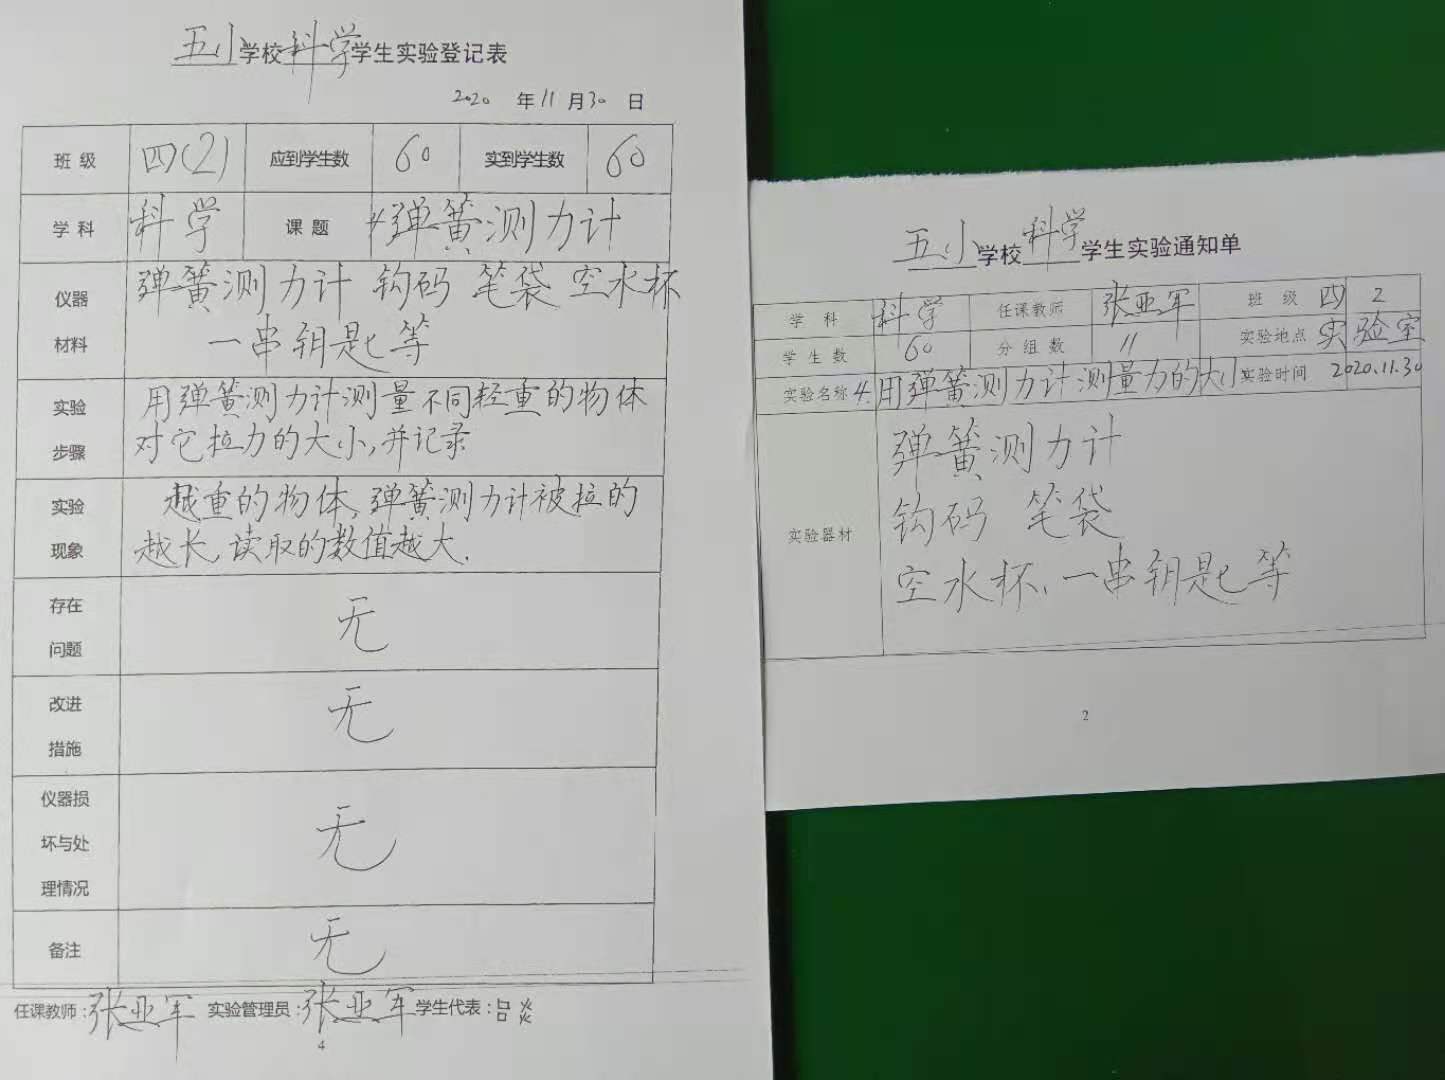 五小学校科学学生实验登记表
2020 年 11 月 30 日
班级 四(2) 应到学生数 60 实到学生数 60
学科 科学 课题 4弹簧测力计
仪器材料 弹簧测力计 钩码 笔袋 空水杯
一串钥匙等
实验步骤 用弹簧测力计测量不同轻重的物体
对它拉力的大小,并记录
实验现象 越重的物体,弹簧测力计被拉的
越长,读取的数值越大.
存在问题 无
改进措施 无
仪器损坏与处理情况 无
备注 无
任课教师:张亚军 实验管理员:张亚军 学生代表:吕炎
4
五小学校科学学生实验通知单
学科 科学 任课教师 张亚军 班级 四 2
学生数 60 分组数 11 实验地点 实验室
实验名称 4.用弹簧测力计测量力的大小 实验时间 2020.11.30
实验器材 弹簧测力计
钩码 笔袋
空水杯、一串钥匙等
2